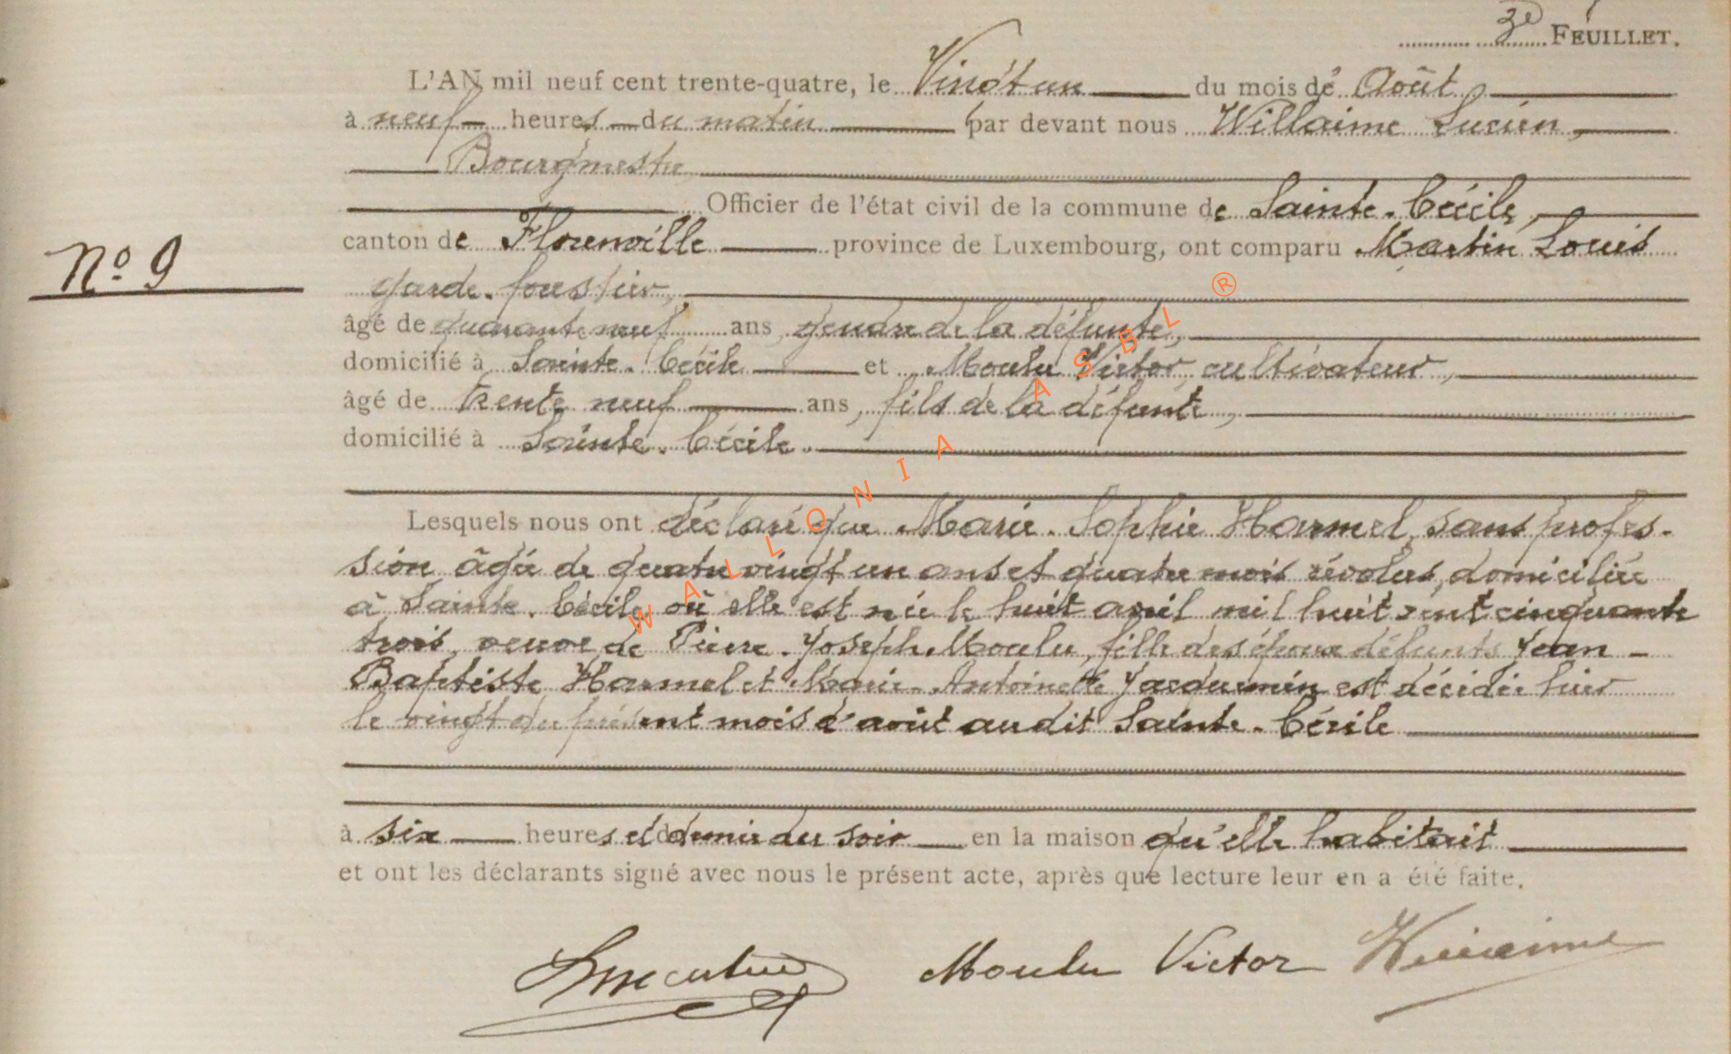 3e FEUILLET.
L'AN mil neuf cent trente-quatre, le Vingt un du mois de Août,
à neuf heures du matin par devant nous Willaime Lucien,
Bourgmestre
Officier de l'état civil de la commune de Sainte-Cécile,
canton de Florenville province de Luxembourg, ont comparu Martin Louis
Nº 9
garde-forestier,
âgé de quarante neuf ans, gendre de la défunte,
domicilié à Sainte-Cécile et Moulu Victor, cultivateur,
âgé de trente neuf ans, fils de la défunte,
domicilié à Sainte-Cécile.
Lesquels nous ont déclaré que Marie-Sophie Harmel, sans profes-
sion âgée de quatre vingt un ans et quatre mois révolus, domiciliée
à Sainte-Cécile où elle est née le huit avril mil huit cent cinquante
trois, veuve de Pierre-Joseph Moulu, fille des époux défunts Jean-
Baptiste Harmel et Marie-Antoinette Jacquemin est décédée hier
le vingt du présent mois d'août au dit Sainte-Cécile
à six heures et demie du soir en la maison qu'elle habitait
et ont les déclarants signé avec nous le présent acte, après que lecture leur en a été faite.
Moulu Victor Willaime
WALLONIA ASBL ®